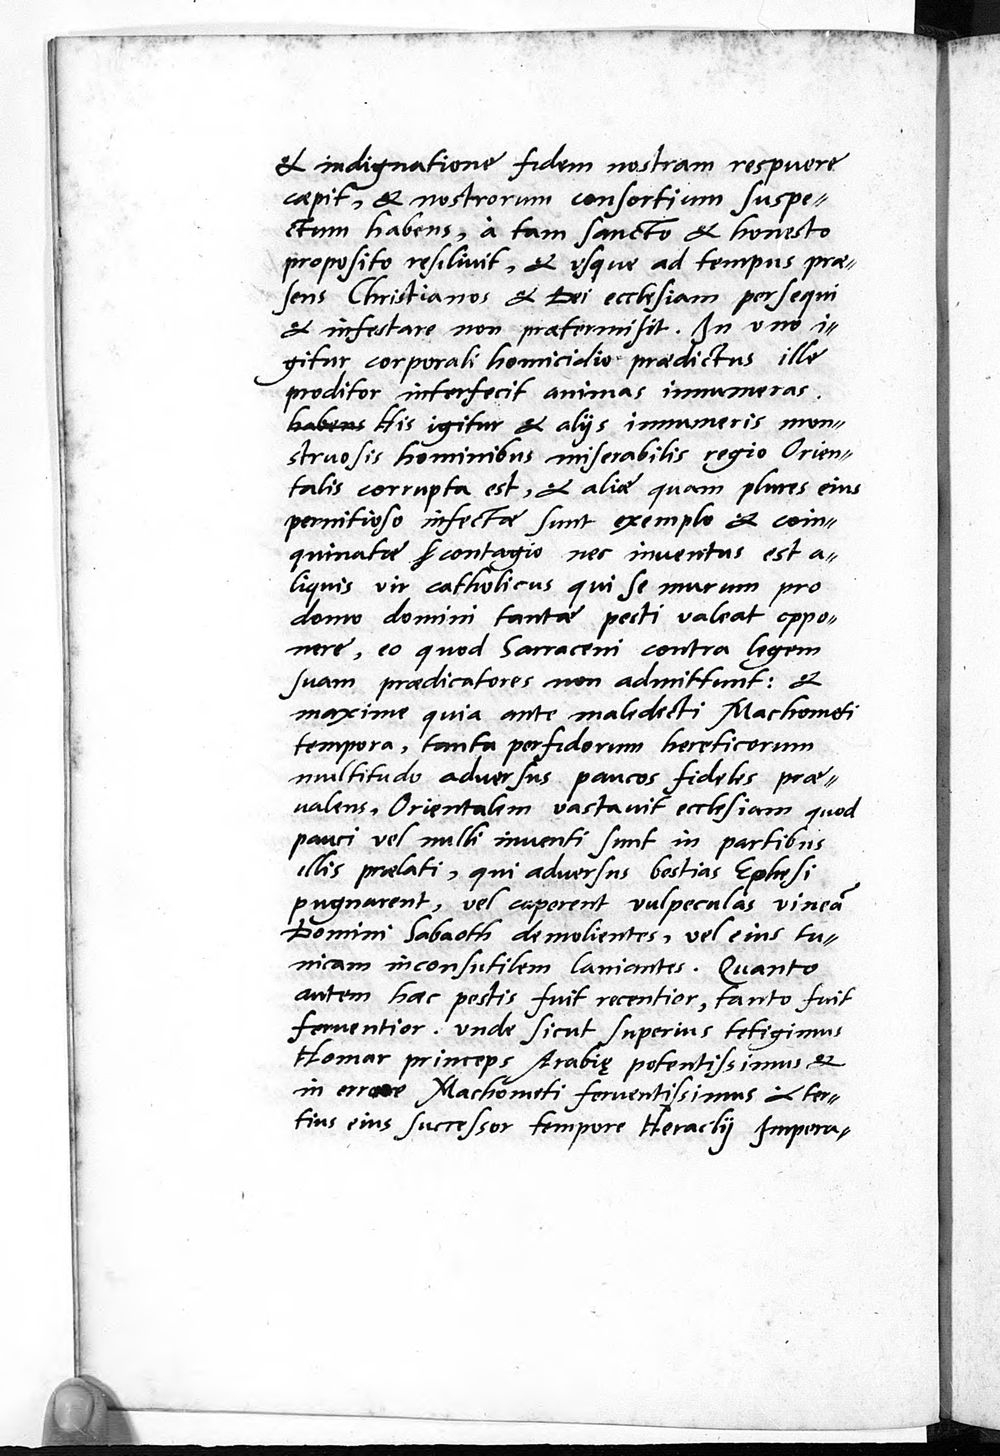 & indignatione fidem nostram respuere
cæpit, & nostrorum consortium suspe=
ctum habens, à tam sancto & honesto
proposito resiliuit, & vsque ad tempus præ=
sens Christianos & Dei ecclesiam persequi
& infestare non prætermisit. In vno i=
gitur corporali homicidio prædictus ille
proditor interfecit animas innumeras.
habens His igitur & alijs innumeris mon=
struosis hominibus miserabilis regio Orien=
talis corrupta est, & aliæ quam plures eius
pernitioso infectæ sunt exemplo & coin=
quinatæ contagio nec inventus est a=
liquis vir catholicus qui se murum pro
domo domini tantæ pesti valeat oppo=
nere, eo quod Sarraceni contra legem
suam prædicatores non admittunt: &
maxime quia ante maledecti Machometi
tempora, tanta perfidorum hereticorum
multitudo aduersus paucos fideles præ=
ualens, Orientalem vastauit ecclesiam quod
pauci vel nulli inuenti sunt in partibus
illis prælati, qui aduersus bestias Ephesi
pugnarent, vel caperent vulpeculas vineã
Domini Sabaoth demolientes, vel eius tu=
nicam inconsutilem laniantes. Quanto
autem hæc pestis fuit recentior, tanto fuit
feruentior. vnde sicut superius tetigimus
Homar princeps Arabię potentissimus &
in errore Machometi feruentissimus & ter=
tius eius successor tempore Heraclij Impera=